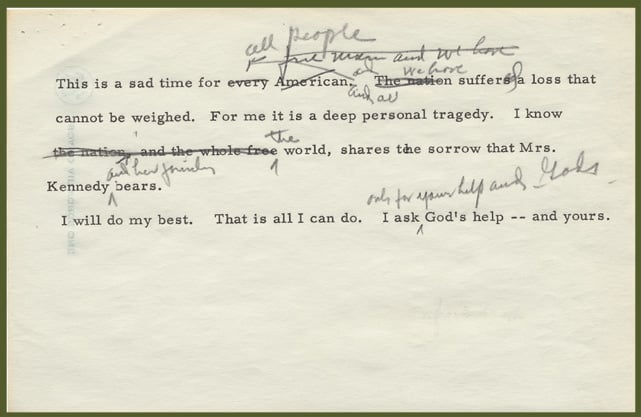 all people
free man and we have
This is a sad time for every American. The nation suffers a loss that
and all
We have
cannot be weighed. For me it is a deep personal tragedy. I know
the
the nation, and the whole free world, shares the sorrow that Mrs.
and her family
Kennedy bears.
only for your help and God's
I will do my best. That is all I can do. I ask God's help -- and yours.